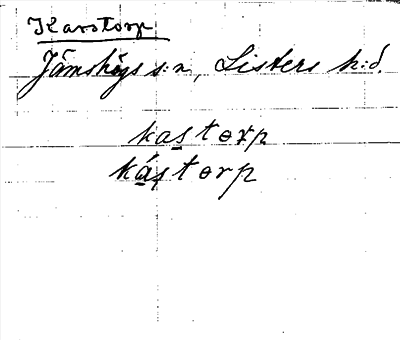 Karstorp
Jämshögs s:n, Listers h:d.
kastorp
kástorp